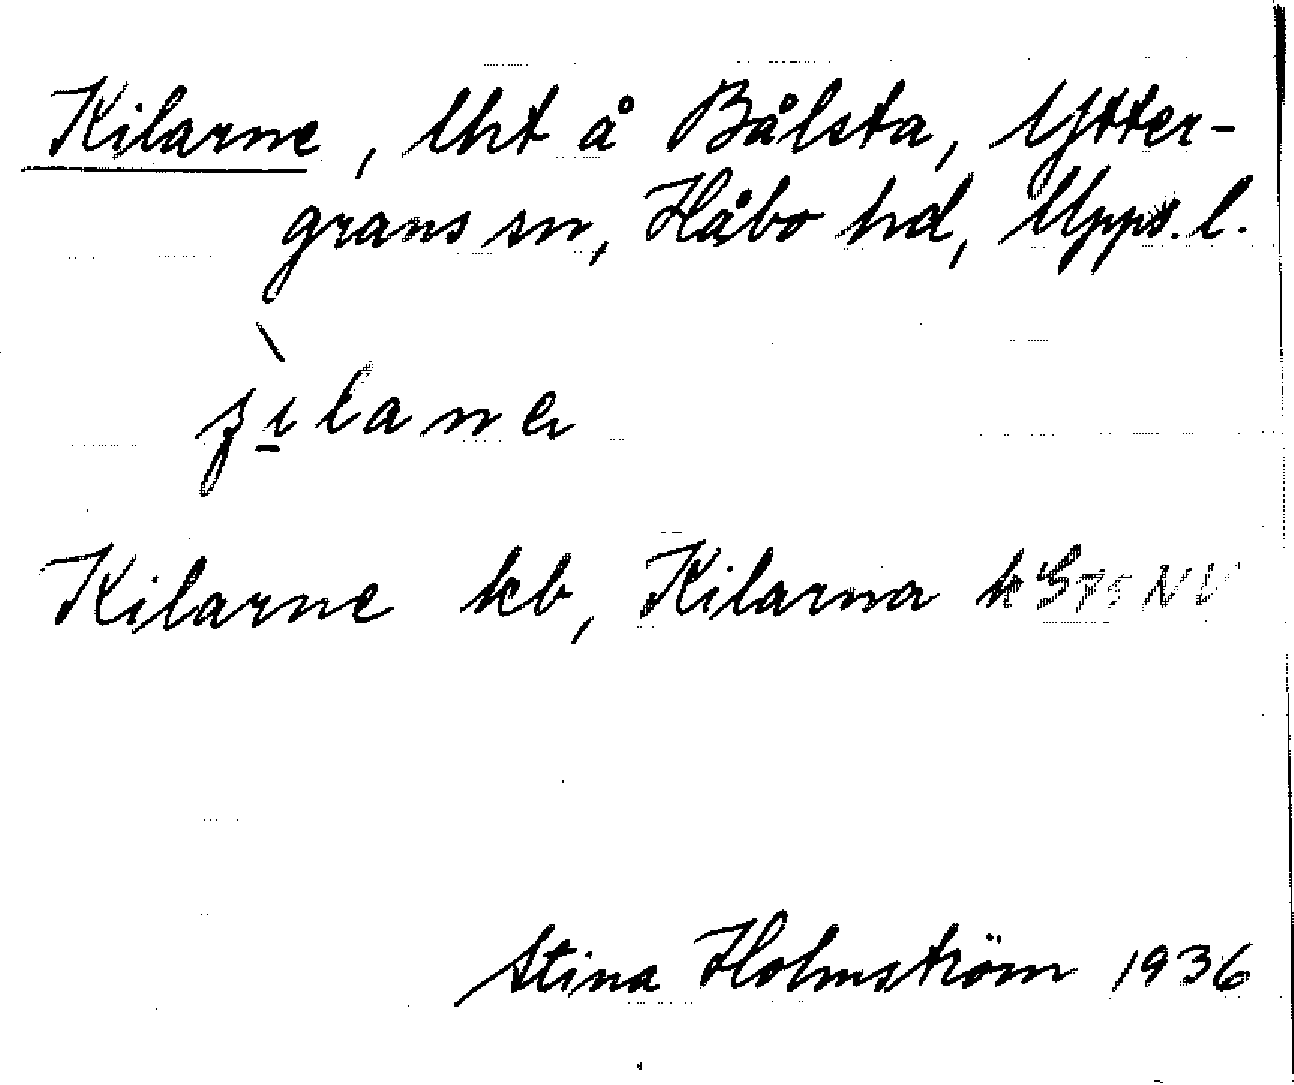 Kilarne, lht å Bålsta, Ytter-
grans sn, Håbo hd, Upps. l.
Kilarne kb, Kilarna k S 75 NV
Stina Holmström 1936